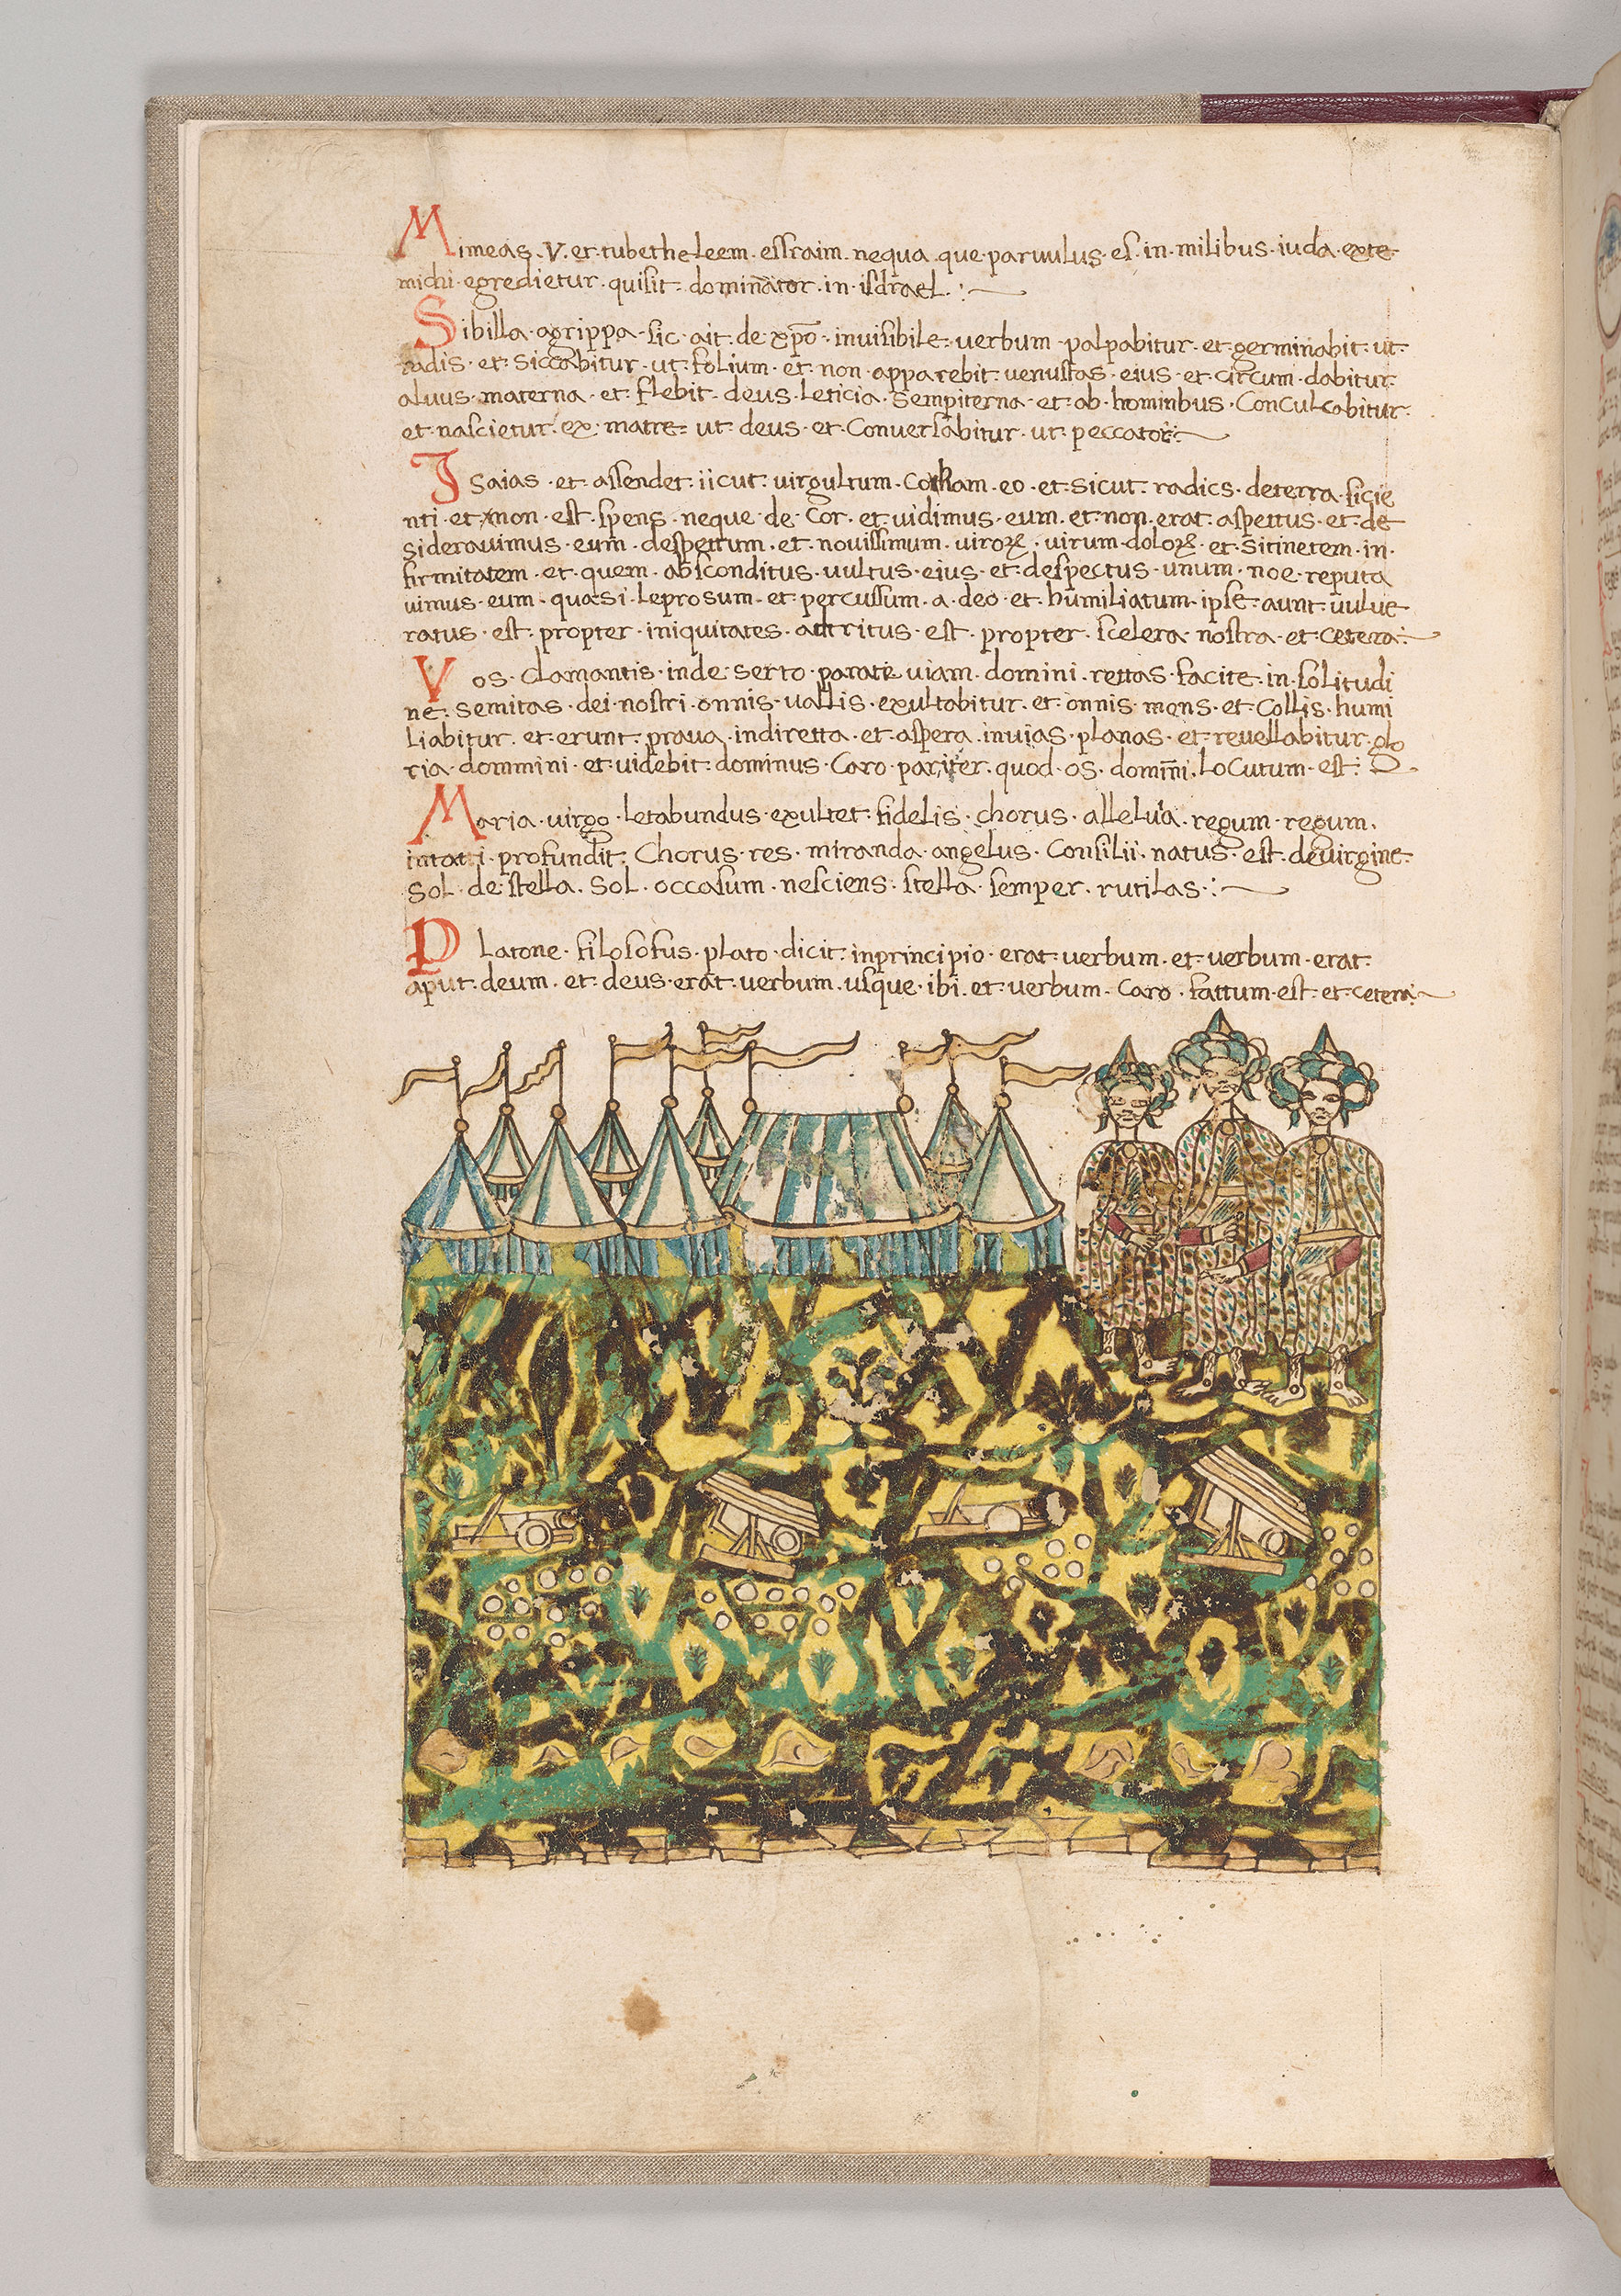 Mimeas. V. et. tubethe leem. essraim. nequa. que. paruulus. es. in. milibus. iuda. exte
michi. egredietur. quisit. dominator. in. isdrael.:
Sibilla. agrippa. sic. ait. de. xpo. inuisibile. uerbum. palpabitur. et. germinabit. ut.
radis. et. siccabitur. ut. folium. et. non. apparebit. uenustas. eius. et. circum. dabitur.
aluus. materna. et. flebit. deus. leticia. sempiterna. et. ab. hominbus. Conculcabitur.
et. nascietur. ex. matre. ut. deus. et. Conuersabitur. ut. peccator:
Isaias. et. assendet. iicut. uirgultum. Coram. eo. et. sicut. radics. deterra. sicie
nti. et. non. est. spens. neque. de. Cor. et. uidimus. eum. et. non. erat. aspettus. et. de
siderauimus. eum. despettum. et. nouissimum. uiroꝝ. uirum. doloꝝ. et. sitinetem. in.
firmitatem. et. quem. absconditus. uultus. eius. et. despectus. unum. noe. reputa
uimus. eum. quasi. leprosum. et. percussum. a. deo. et. humiliatum. ipse. aunt. uulue
ratus. est. propter. iniquitates. attritus. est. propter. scelera. nostra. et. cetera:
Vos. clamantis. inde. serto. parate. uiam. domini. rettas. facite. in. solitudi
ne. semitas. dei. nostri. onnis. uallis. exultabitur. et. onnis. mons. et. Collis. humi
liabitur. et. erunt. praua. indiretta. et. aspera. inuias. planas. et. reuellabitur. glo
ria. dommini. et. uidebit. dominus. Caro. pariter. quod. os. domini. locutum. est:
Maria. uirgo. letabundus. exultet. fidelis. chorus. alleluia. regum. regum.
intatti. profundit. Chorus. res. miranda. angelus. Consilii. natus. est. deuirgine.
Sol. de. stella. Sol. occasum. nesciens. stella. semper. rutilas.:
Platone. filosofus. plato. dicit. inprincipio. erat. uerbum. et. uerbum. erat.
aput. deum. et. deus. erat. uerbum. usque. ibi. et. uerbum. Caro. fattum. est. et. cetera